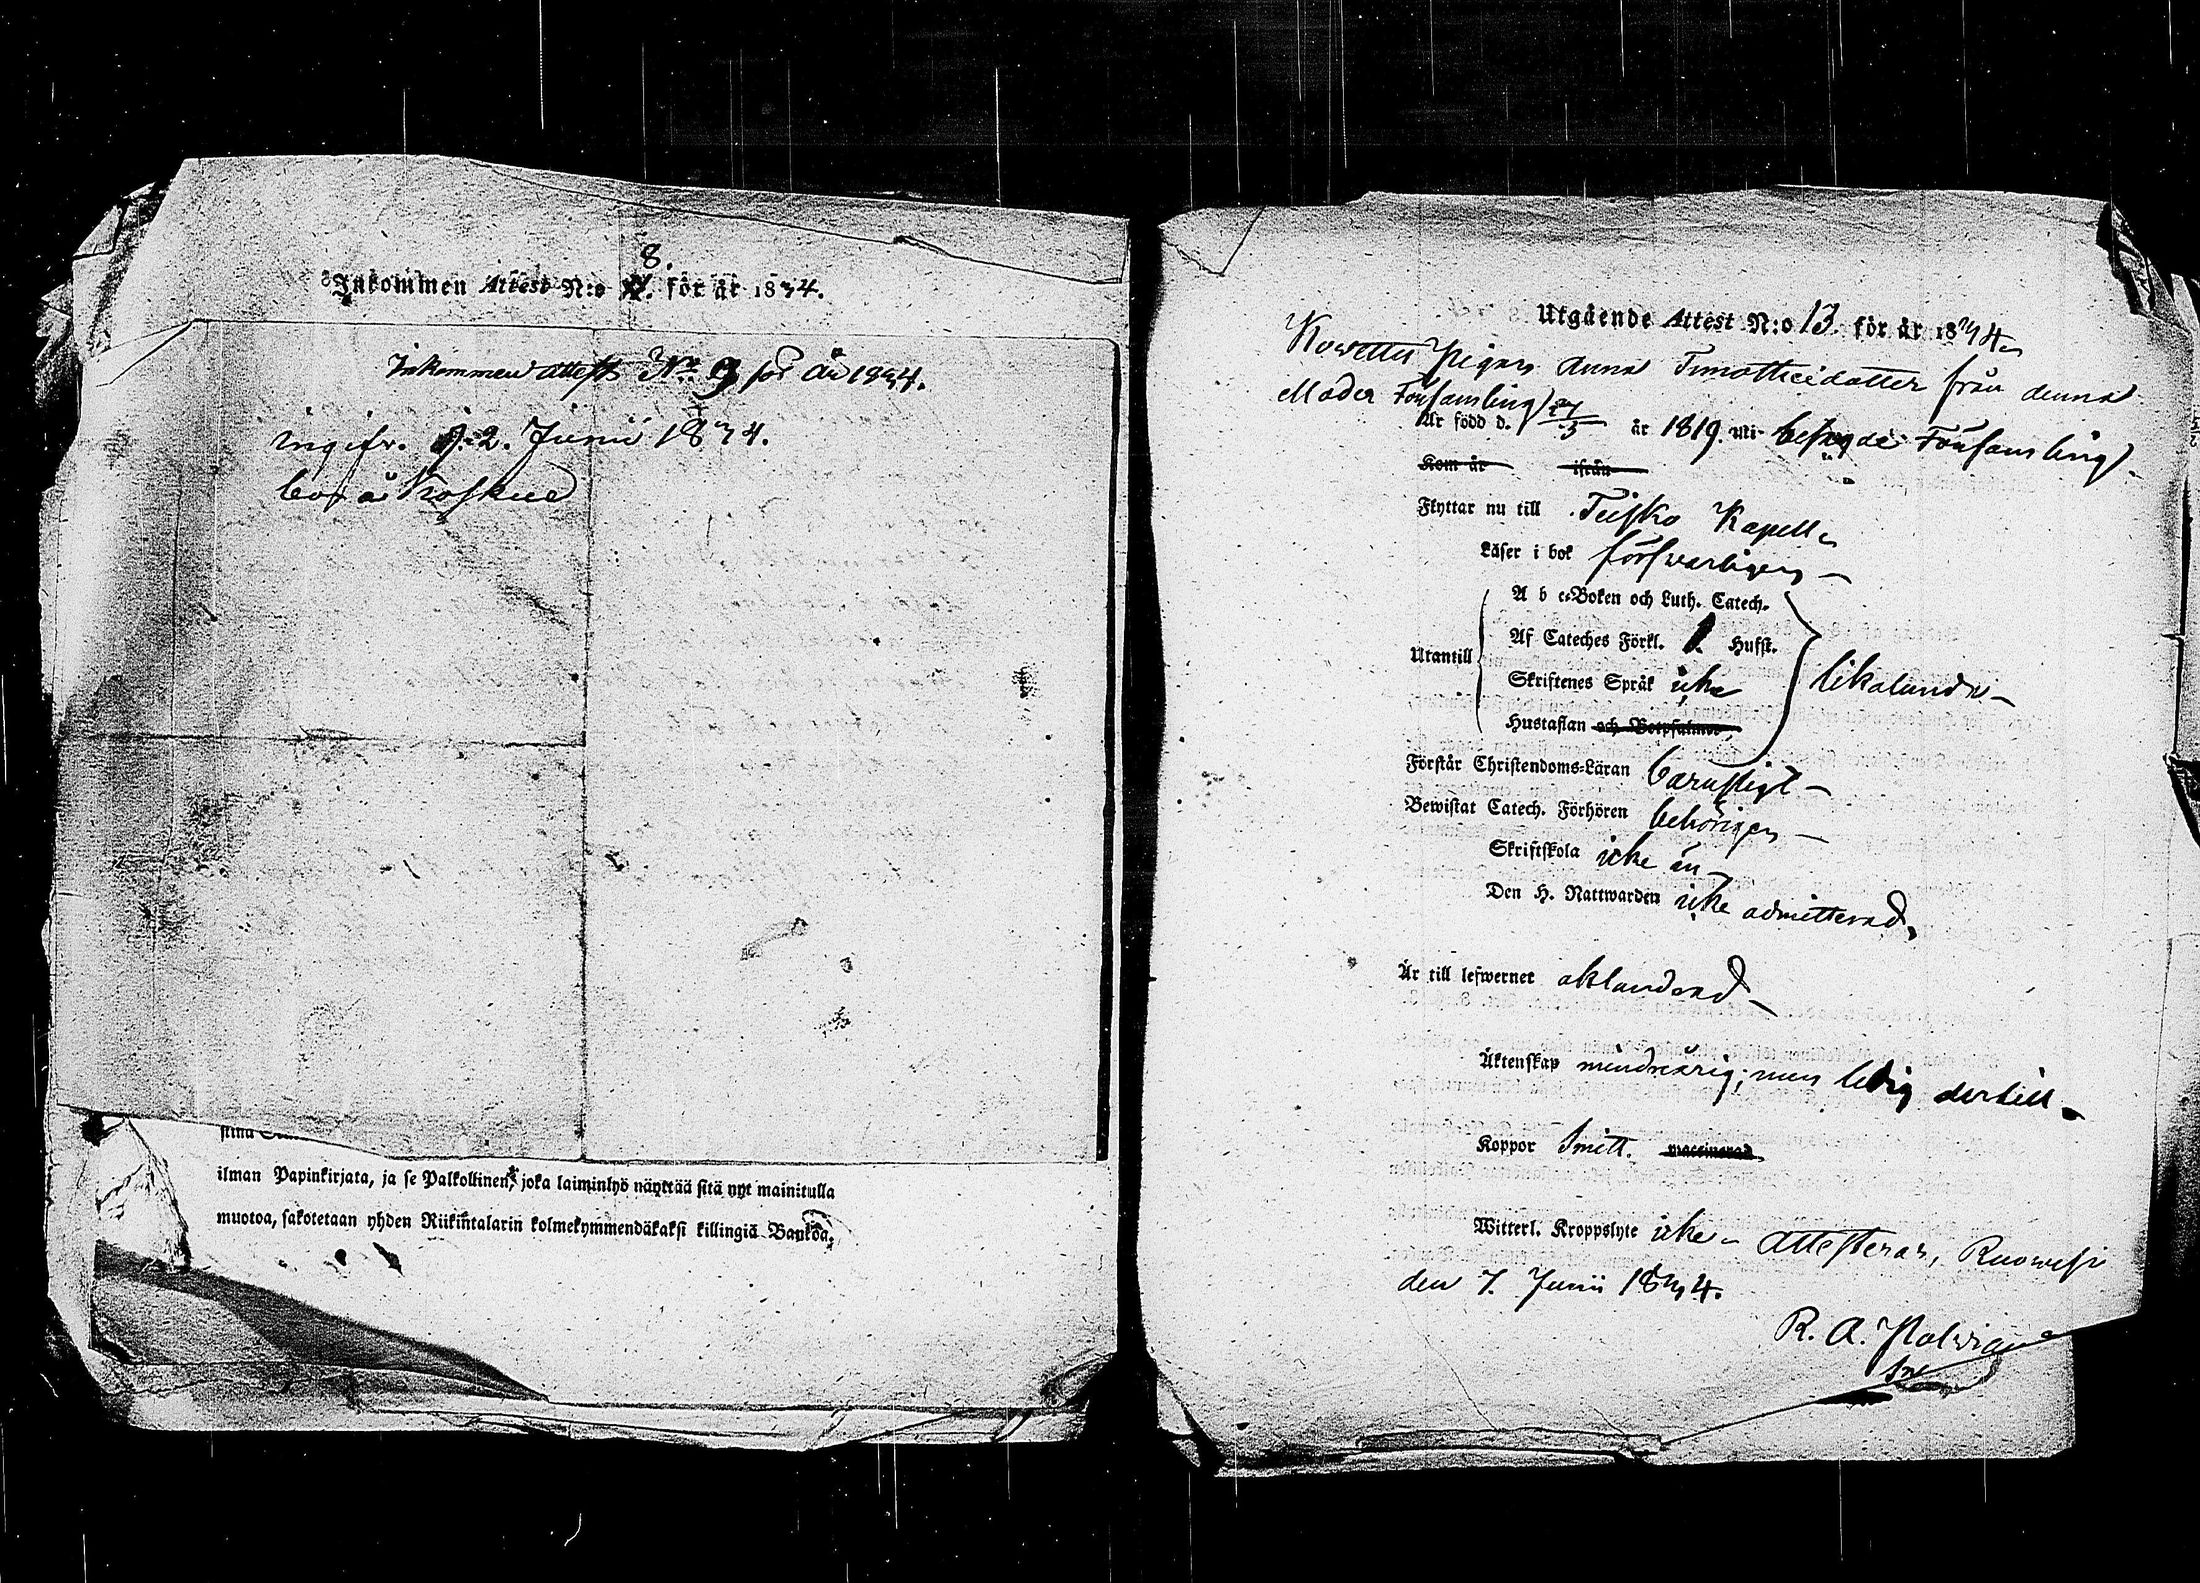 8.
Inkommen Attest N:o för år 1834.
Inkommen attest No 9 för År 1834.
ingifv. d. 2. Junii 1834.
bor å Koskue
ilman Papinkirjata, ja se Palkollinen, joka laiminlyö näyttää sitä nyt mainitulla
muotoa, sakotetaan yhden Riikintalarin kolmekymmendäkaksi killingiä Bankoa.
Utgående Attest N:o 13. för år 1834.
Pigan Anna Timotheidotter från denna
Moder Församling
Är född d. 27/5 år 1819. uti besagde Församling.
Kom år ifrån
Flyttar nu till Teisko Kapell.
Läser i bok försvarligen
A b c-Boken och Luth. Catech.
Af Cateches Förkl. 1. Hufst.
Utantill likalunda
Skriftenes Språk icke
Hustaflan och Botpsalmer
Förstår Christendoms-Läran barnsligt
Bewistat Catech. Förhören behörigen
Skriftskola icke än
Den H. Nattwarden icke admitterad.
Är till lefwernet oklandrad
Äktenskap minderårig; men ledig dertill.
Koppor Smitt. vaccinerad
Witterl. Kroppslyte icke. Attesterar, Ruowesi
den 7. Junii 1834.
R. A.